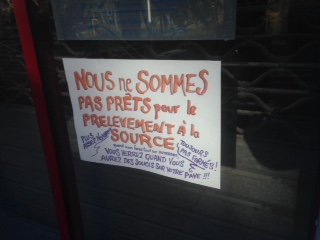 NOUS ne SOMMES
PAS PRÊTS pour le
PRELEVEMENT à la
SOURCE
TOUJOURS
PAS FORMÉS!
VOUS VERREZ QUAND VOUS
AUREZ DES SOUCIS SUR VOTRE PAIE!!!